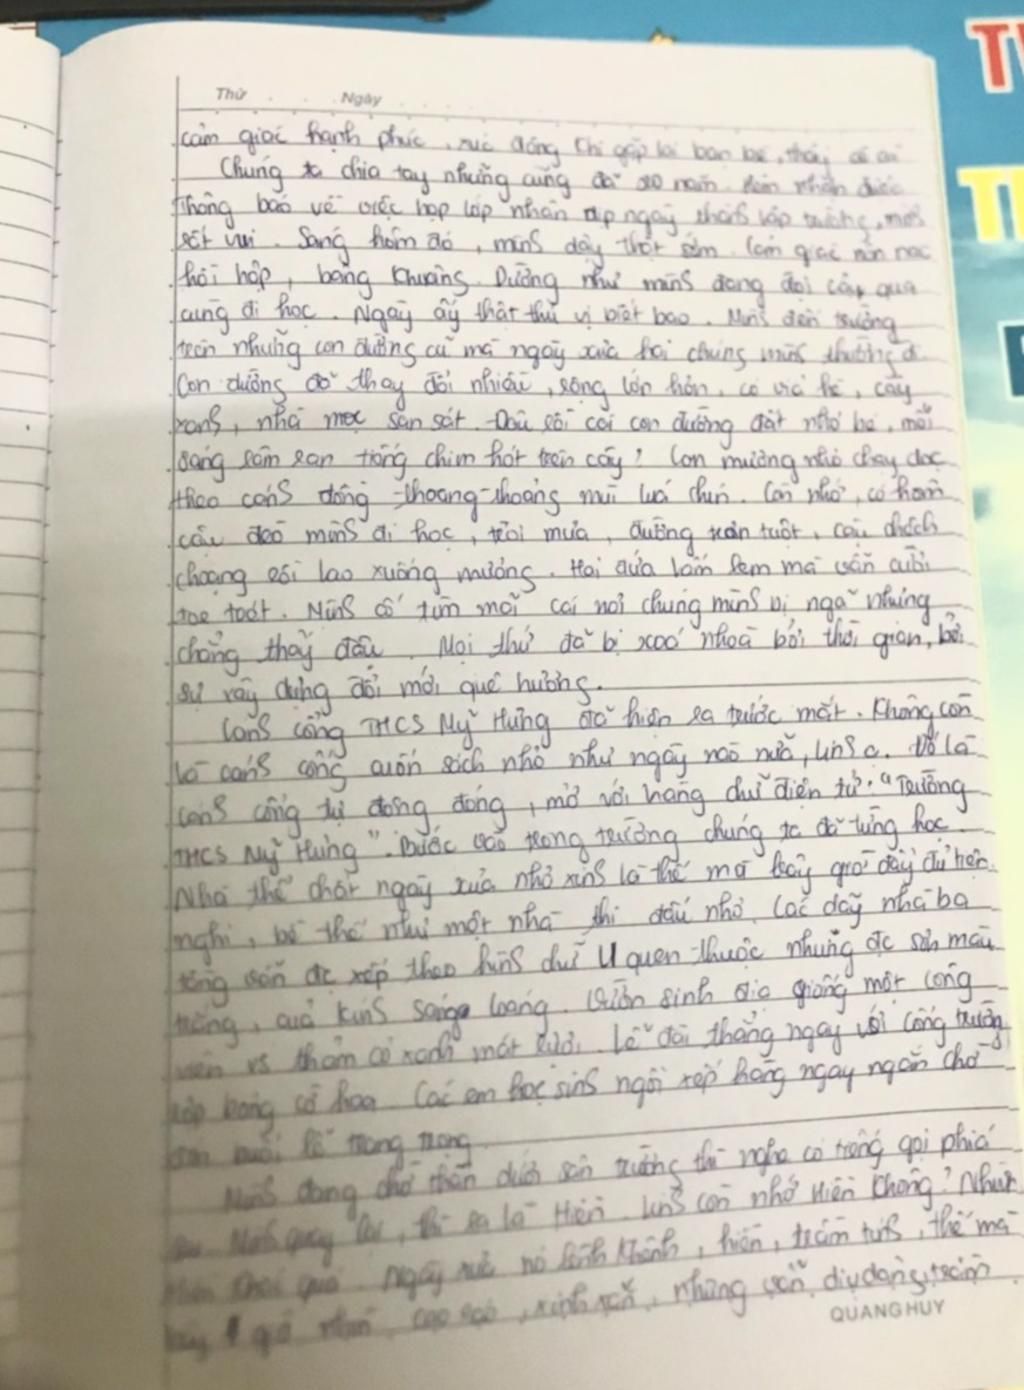 Thứ Ngày
cảm giác hạnh phúc, xúc động khi gặp lại bạn bè, thầy cô
Chúng ta chia tay nhưng cũng đã 20 năm. nhận được
thông báo về việc họp lớp nhân dịp ngày thành lập trường, mình
rất vui. Sáng hôm đó, mình dậy thật sớm. Cảm giác
hồi hộp, bâng khuâng. Dường như mình đang đợi cậu qua
cùng đi học. Ngày ấy thật thú vị biết bao. Mình đến trường
trên những con đường cũ mà ngày xưa hai chúng mình thường đi.
Con đường đã thay đổi nhiều, rộng lớn hơn, có vỉa hè, cây
xanh, nhà mọc san sát. Đâu rồi cái con đường đất nhỏ bé, mỗi
sáng râm ran tiếng chim hót trên cây? Con mương nhỏ chạy dọc
theo cánh đồng thoang thoảng mùi lúa chín. Còn nhớ, có hôm
cậu đèo mình đi học, trời mưa, đường trơn tuột, cậu chệch
choạng rồi lao xuống mương. Hai đứa lấm lem mà vẫn cười
toe toét. Mình cố tìm mãi cái nơi chúng mình bị ngã nhưng
chẳng thấy đâu. Mọi thứ đã bị xoá nhoà bởi thời gian, bởi
sự xây dựng đổi mới quê hương.
Cánh cổng THCS Mỹ Hưng đã hiện ra trước mắt. Không còn
là cánh cổng cuốn sách nhỏ như ngày nào nữa, Linh ạ. Đó là
cánh cổng tự động đóng, mở với hàng chữ điện tử: "Trường
THCS Mỹ Hưng". Bước vào trong trường chúng ta đã từng học.
Nhà thể chất ngày xưa nhỏ xinh là thế mà bây giờ đầy đủ tiện
nghi, bề thế như một nhà thi đấu nhỏ. Các dãy nhà ba
tầng vẫn đc xếp theo hình chữ U quen thuộc nhưng đc sơn màu
trắng, cửa kính sáng loáng. Vườn sinh địa giống một công
viên vs thảm cỏ xanh mát rượi. Lễ đài thẳng ngay với cổng trường
rợp bóng cờ hoa. Các em học sinh ngồi xếp hàng ngay ngắn chờ
buổi lễ trang trọng.
Mình đang dưới sân trường thì nghe có tiếng gọi phía
sau. Mình quay lại, thì ra là Hiền. Linh còn nhớ Hiền không?
quá. Ngày xưa nó lênh khênh, hiền, trầm tính, thế mà
xinh xắn, nhưng vẫn dịu dàng, trầm
QUANG HUY
T
T